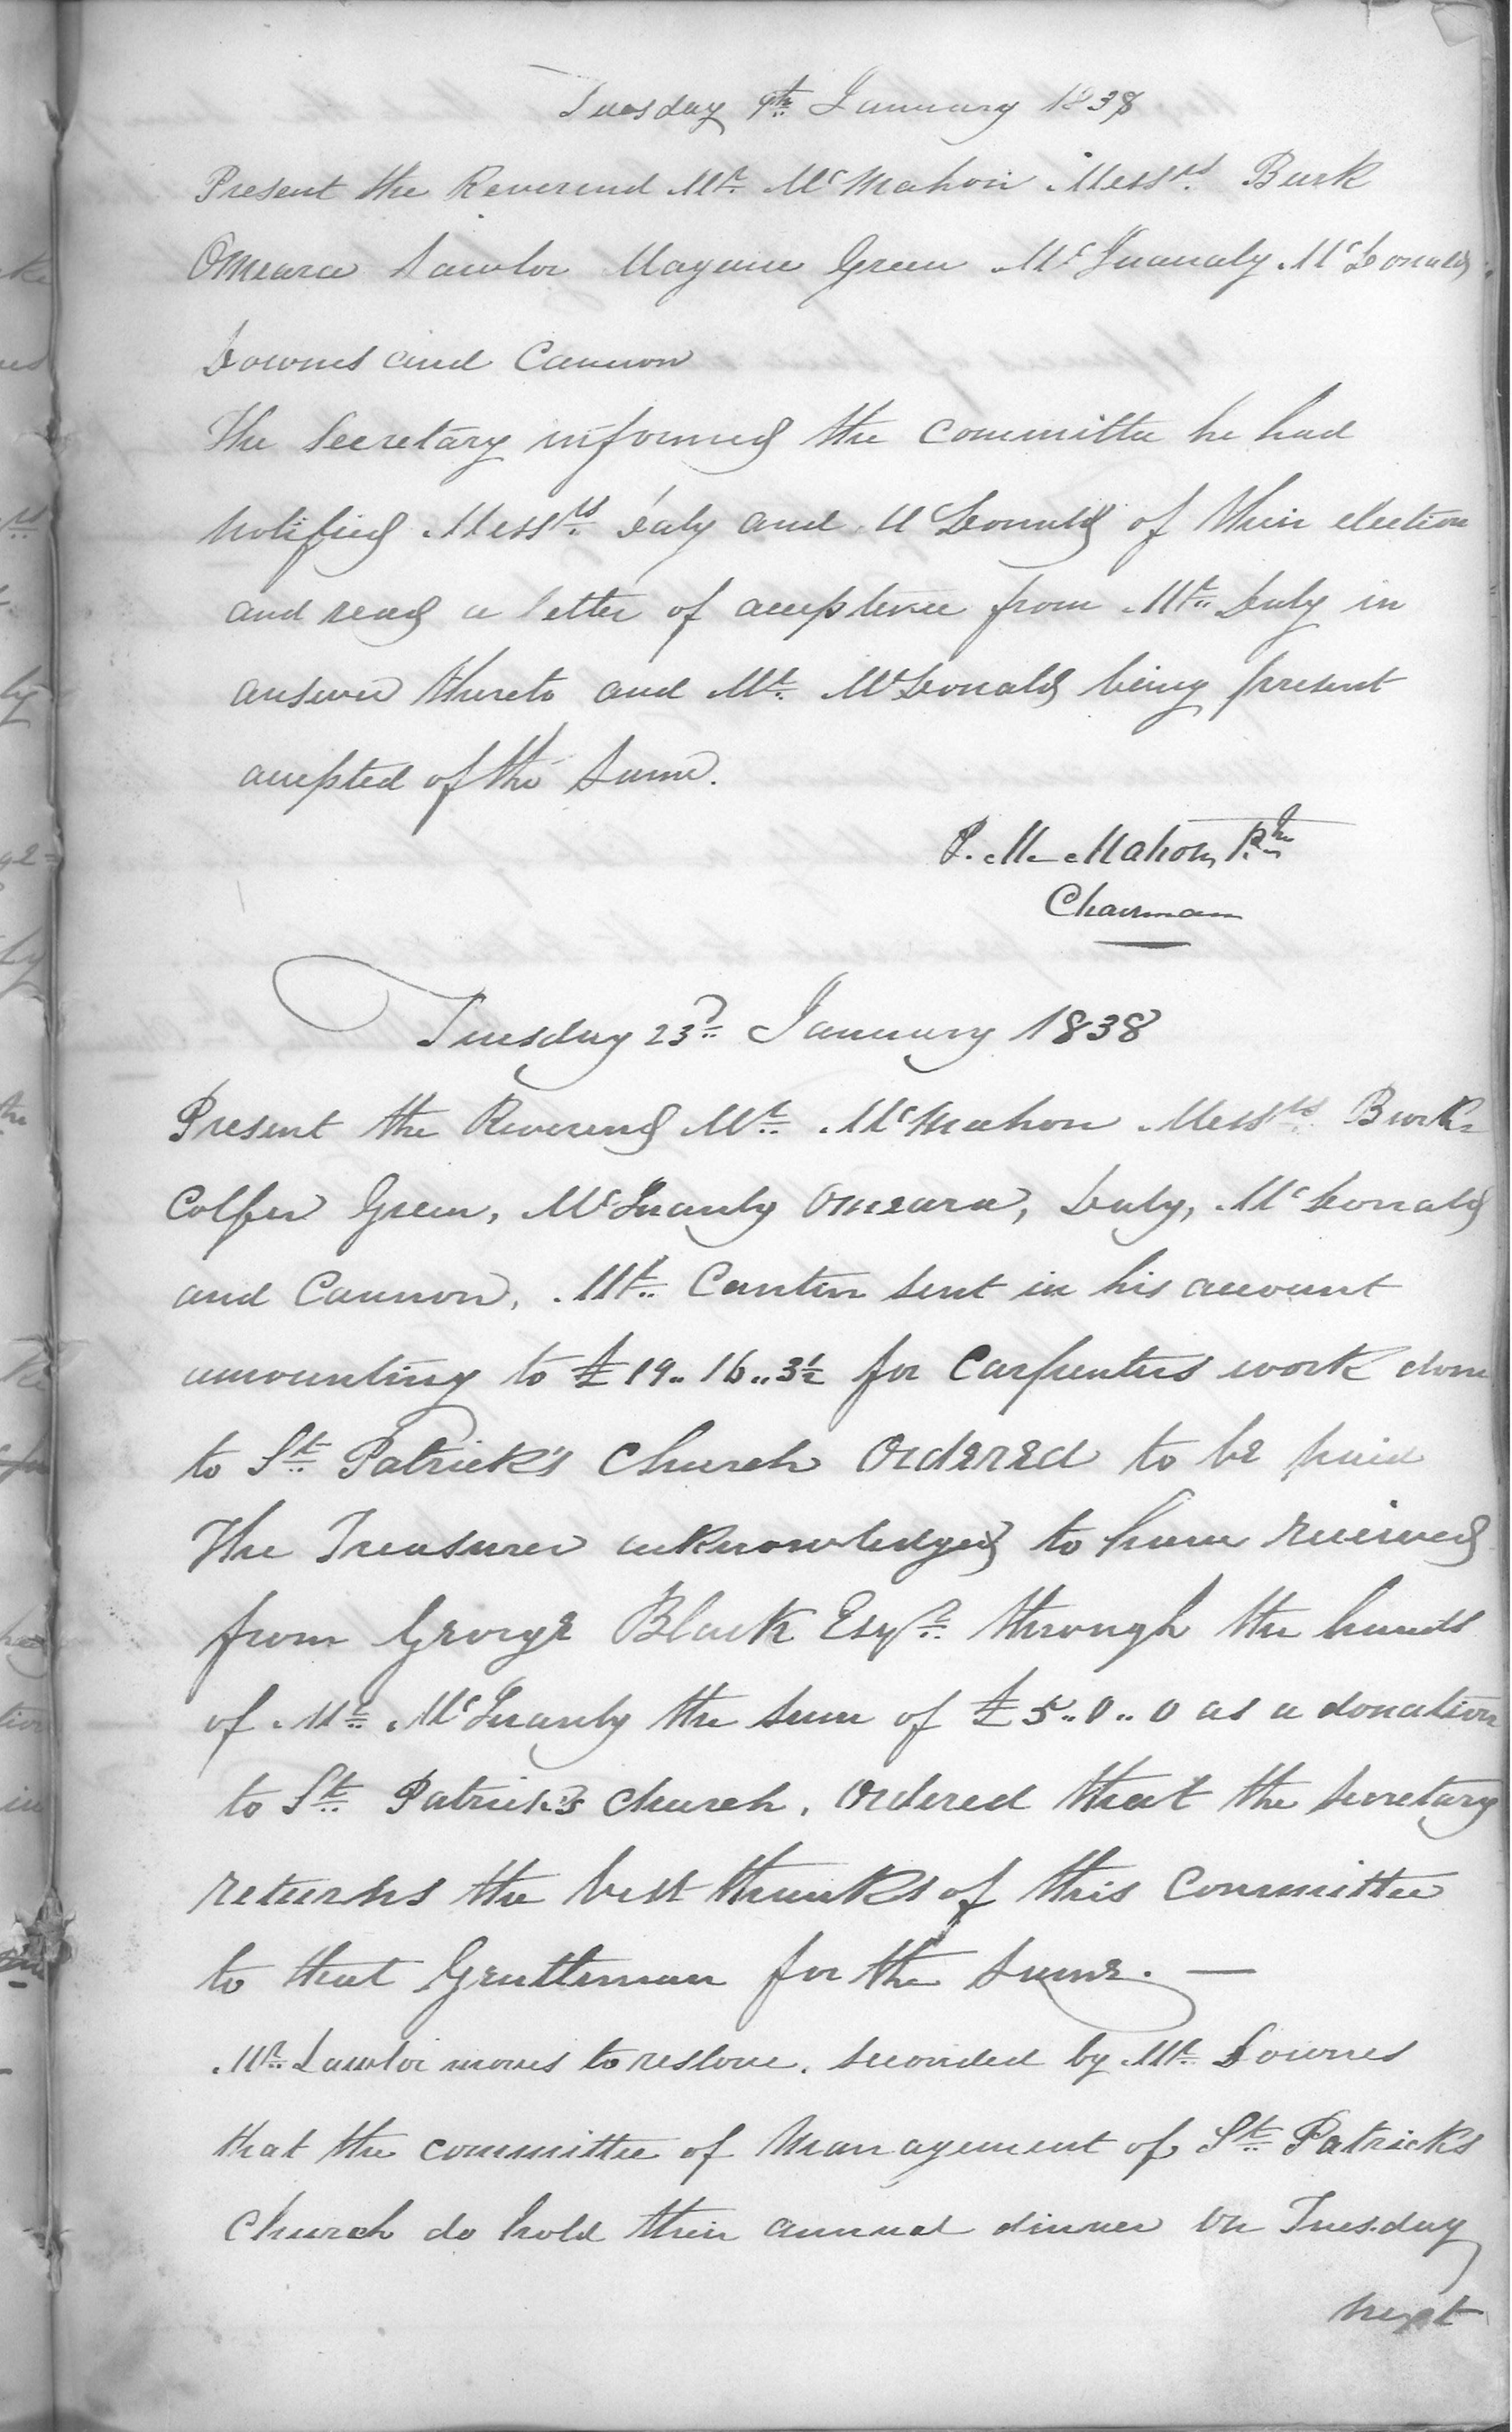 Tuesday 9th January 1838
Present the Reverend Mr. McMahon Messrs. Burk
Omeara Lawlor Maguire Green McInanaly McDonald
Downes and Cannon
The Secretary informed the Committee he had
notified Messrs. Daly and McDonald of their election
and read a letter of acceptence from Mr. Daly in
answer thereto and Mr. McDonald being present
accepted of the same.
P. McMahon, Ptr
Chairman
Tuesday 23d January 1838
Present the Reverend Mr. McMahon Messrs. Burke
Colfer Green, McInanly Omeara, Daly, McDonald
and Cannon. Mr. Cantin sent in his account
amounting to £19..16..3½ for Carpenters work done
to St. Patrick's Church Ordered to be paid
The Treasurer acknowledged to have received
from George Black Esqr. through the hands
of Mr. McInanly the sum of £5..0..0 as a donation
to St. Patrick's Church. Ordered that the Secretary
returns the best thanks of this Committee
to that Gentleman for the same. —
Mr. Lawlor moves to reslove. seconded by Mr. Downes
that the committee of Management of St. Patricks
Church do hold their annual dinner on Tuesday
next